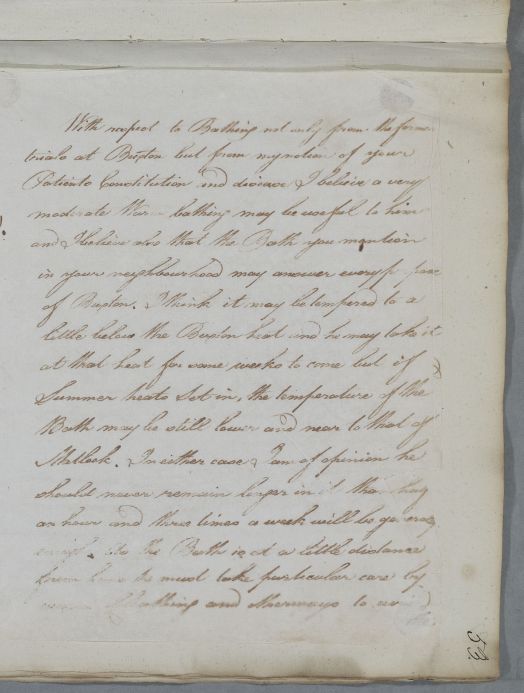 With respect to Bathing not only from the former
trials at Buxton but from my notion of your
Patients Constitution and disease I believe a very
moderate Warm bathing may be useful to him
and I believe also that the Bath you mention
in your neighbourhood may answer every
of Buxton. I think it may be tempered to a
little below the Buxton heat and he may take it
at that heat for some weeks to come but if
Summer heats set in, the temperature of the
Bath may be still lower and near to that of
Matlock. In either case I am of opinion he
should never remain longer in it than half
an hour and three times a week will be generally
enough. As the Bath is at a little distance
from home he must take particular care by
Cloathing and otherways to avoid
the
53.